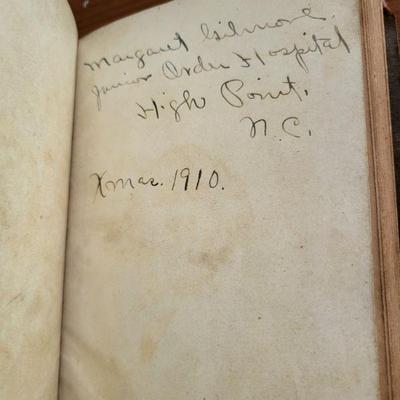 Margaret Gilmore.
Junior Order Hospital
High Point,
N.C.
Xmas. 1910.